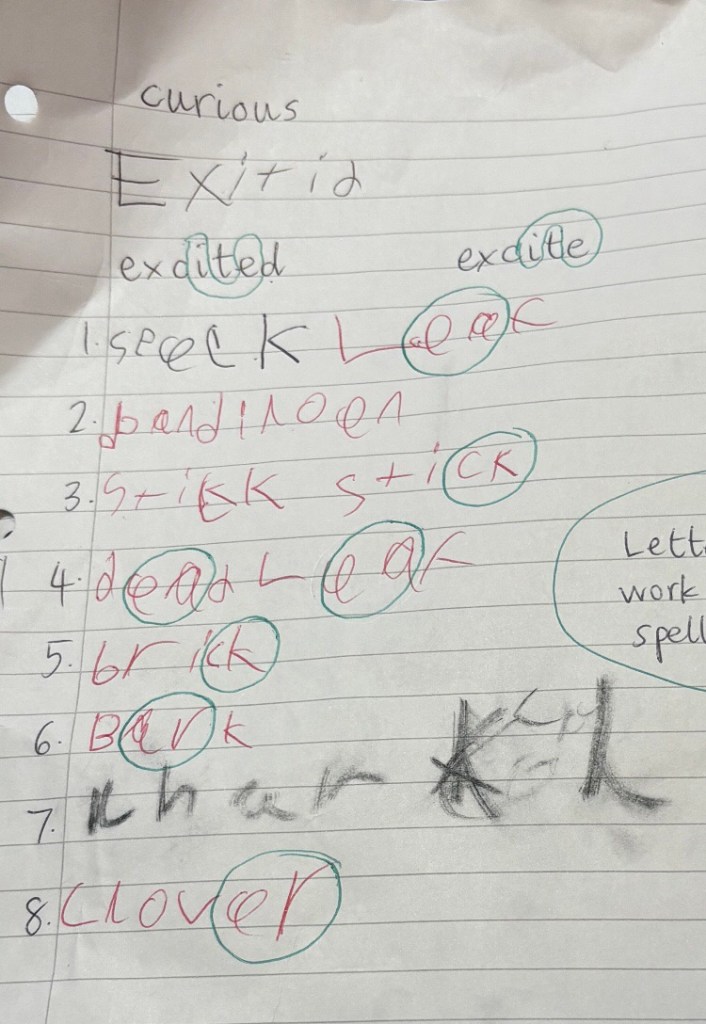 curious
Exitid
excited excitle
1. speck Leak
2. bandinoen
3. stikk stick
4. dead Leak
5. brick
6. Bark
7.
8. Clover
Lett
work
spell